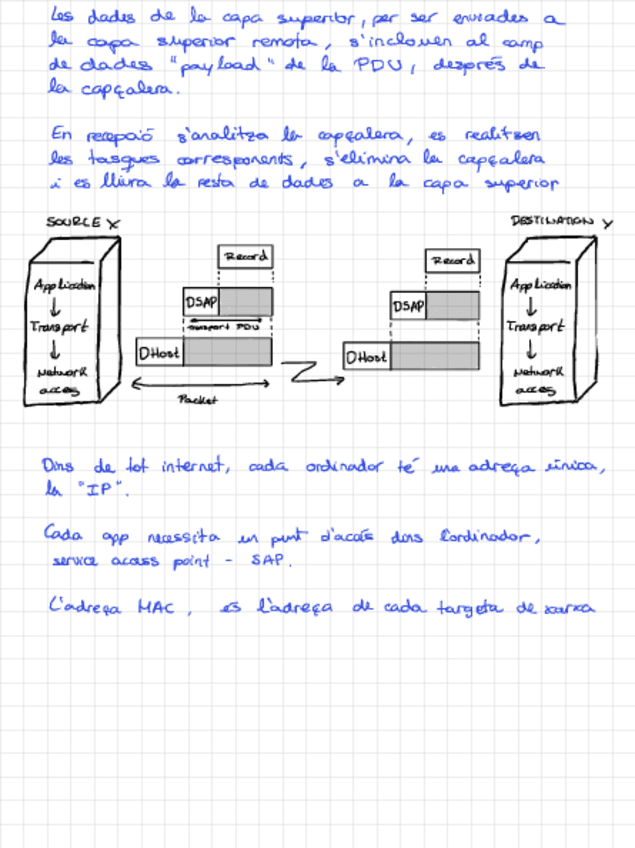 Les dades de la capa superior, per ser enviades a
la capa superior remota, s'inclouen al camp
de dades "payload" de la PDU, després de
la capçalera.
En recepció s'analitza la capçalera, es realitzen
les tasques corresponents, s'elimina la capçalera
i es lliura la resta de dades a la capa superior
SOURCE X
DESTINATION Y
Application
Transport
Network
acces
Record
DSAP
Transport PDU
DHost
Packet
Record
DSAP
DHost
Application
Transport
Network
acces
Dins de tot internet, cada ordinador té una adreça única,
la "IP".
Cada app necessita un punt d'accés dins l'ordinador,
service access point - SAP.
L'adreça MAC, es l'adreça de cada targeta de xarxa